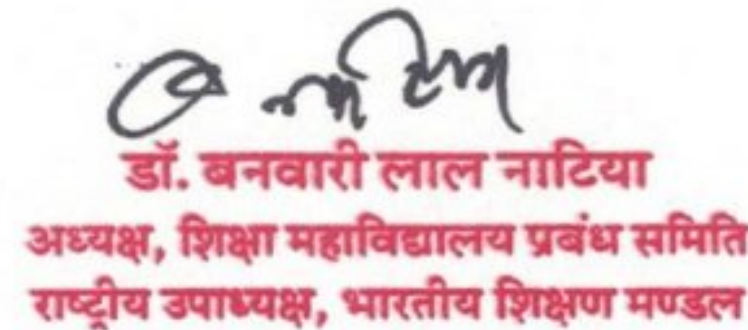 डॉ. बनवारी लाल नाटिया
अध्यक्ष, शिक्षा महाविद्यालय प्रबंध समिति
राष्ट्रीय उपाध्यक्ष, भारतीय शिक्षण मण्डल